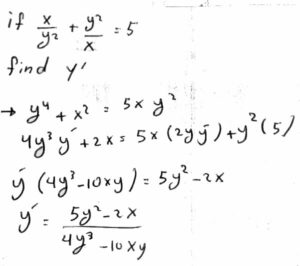 if x/y² + y²/x = 5
find y'
→ y⁴ + x² = 5x y²
4y³ y' + 2x = 5x (2yy') + y² (5)
y' (4y³ - 10xy) = 5y² - 2x
y' = (5y² - 2x)/(4y³ - 10xy)